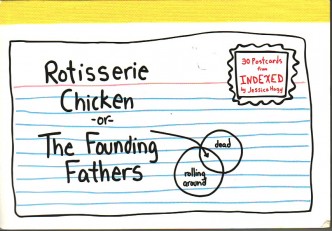 Rotisserie
Chicken
-or-
The Founding
Fathers
30 Postcards
from
INDEXED
by Jessica Hagy
dead
rolling
around